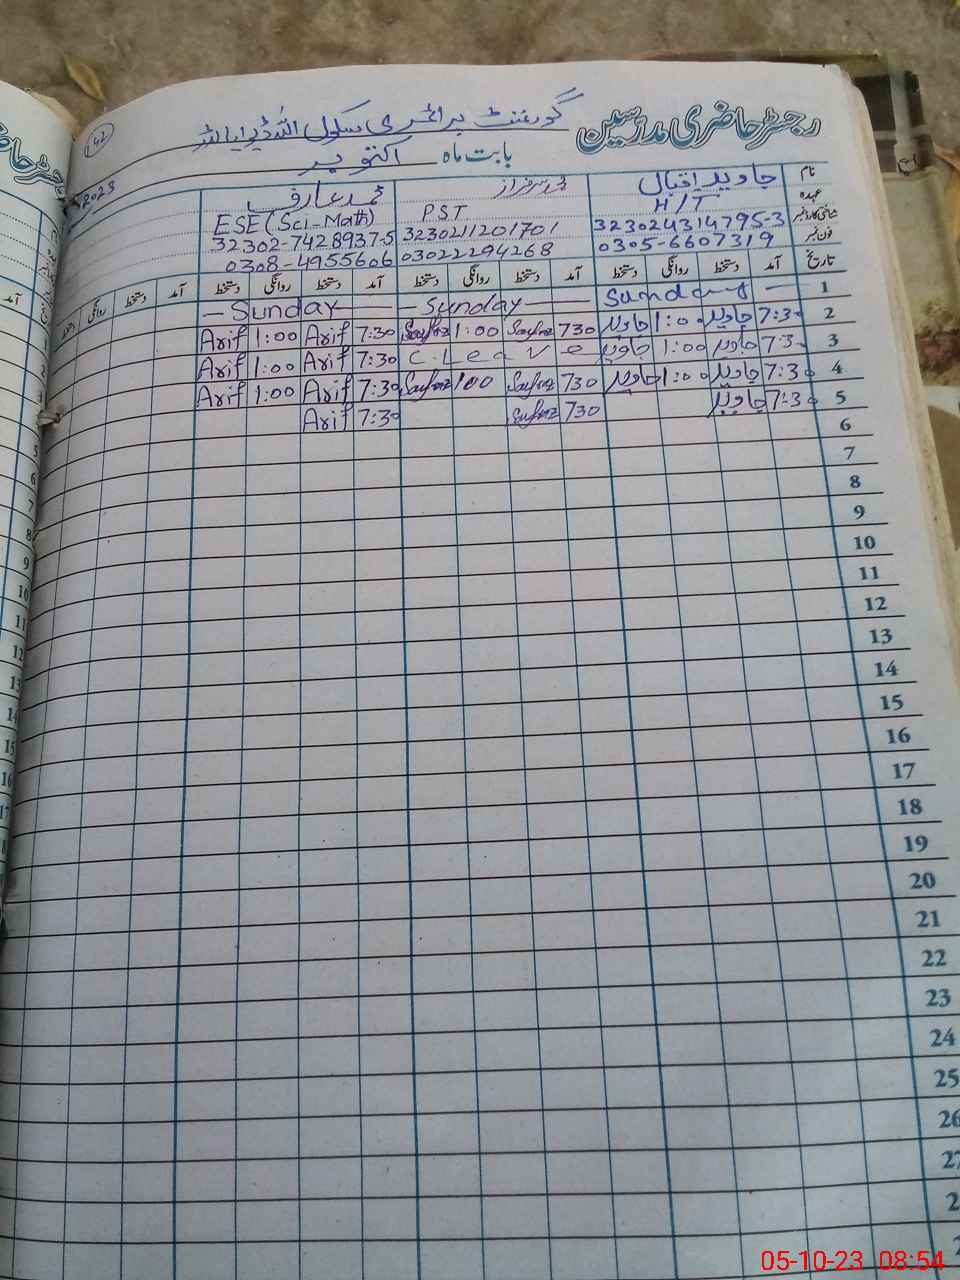 رجسٹر حاضری مدرسین گورنمنٹ پرائمری سکول
42
بابت ماہ اکتوبر 2023
نام جاوید اقبال محمد سرفراز محمد عارف
عہدہ H/T PST ESE (Sci-Math)
شناختی کارڈ نمبر 323024314795-3 3230211201701 32302-7428937-5
فون نمبر 0305-6607319 03022294268 0308-4955606
تاریخ آمد دستخط روانگی دستخط آمد دستخط روانگی دستخط آمد دستخط روانگی دستخط آمد دستخط روانگی دستخط
1 Sunday — Sunday — Sunday —
2 7:30 جاوید 1:00 جاوید 730 Sarfraz 1:00 Sarfraz 7:30 Arif 1:00 Arif
3 7:30 جاوید 1:00 جاوید C-Leave 7:30 Arif 1:00 Arif
4 7:30 جاوید 1:00 جاوید 730 Sarfraz 100 Sarfraz 7:30 Arif 1:00 Arif
5 7:30 جاوید 730 Sarfraz 7:30 Arif
6
7
8
9
10
11
12
13
14
15
16
17
18
19
20
21
22
23
24
25
26
27
05-10-23 08:54